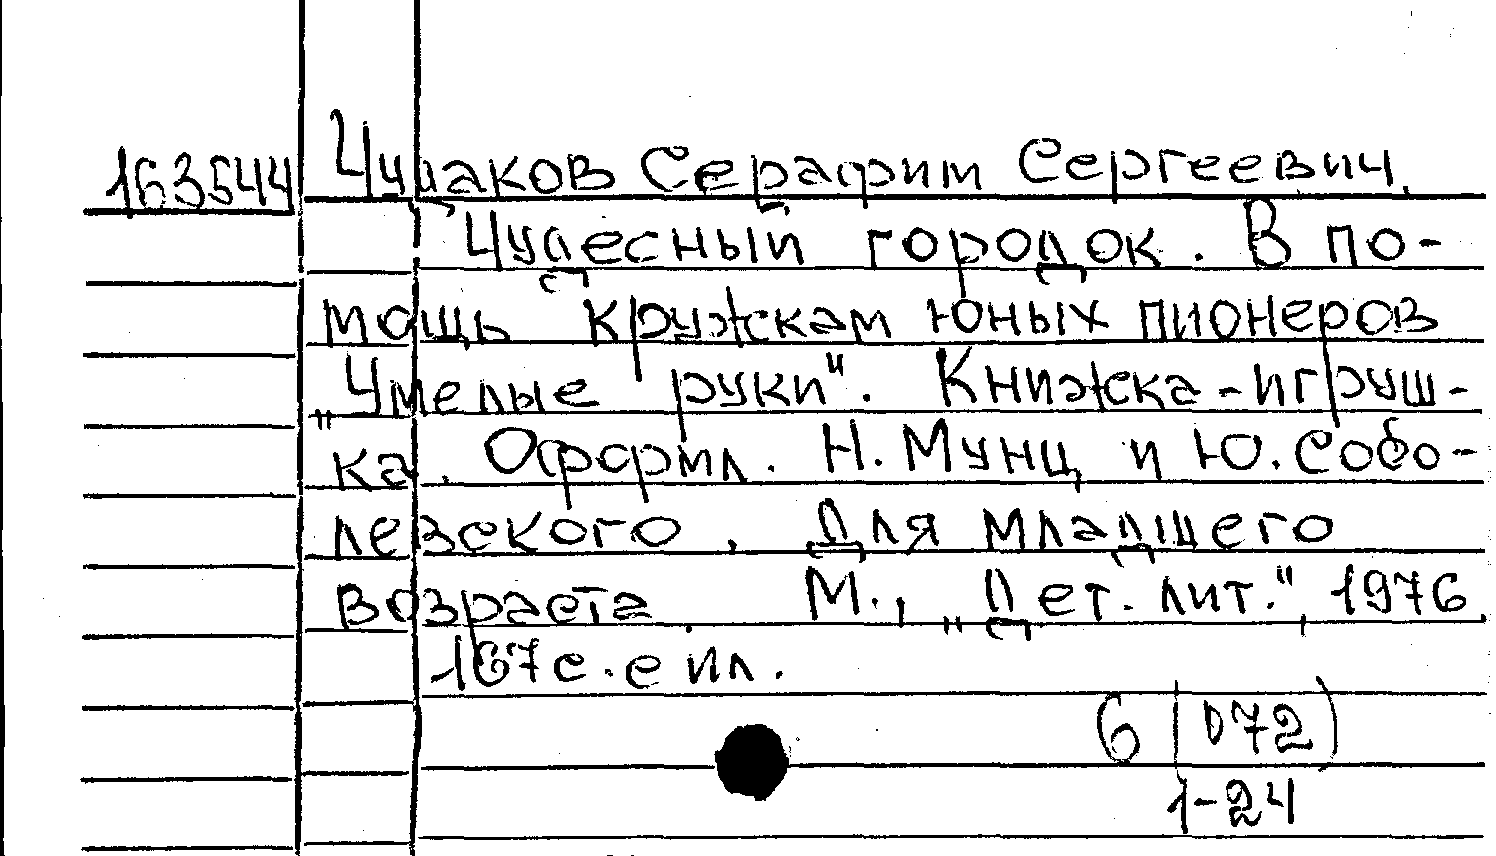 163544 Чумаков Серафим Сергеевич.
Чудесный городок. В по-
мощь кружкам юных пионеров
„Умелые руки". Книжка-игруш-
ка. Оформл. Н. Мунц и Ю. Собо-
левского. Для младшего
возраста. М., „Дет. лит.", 1976.
167 с. с ил.
6(072)
1-24